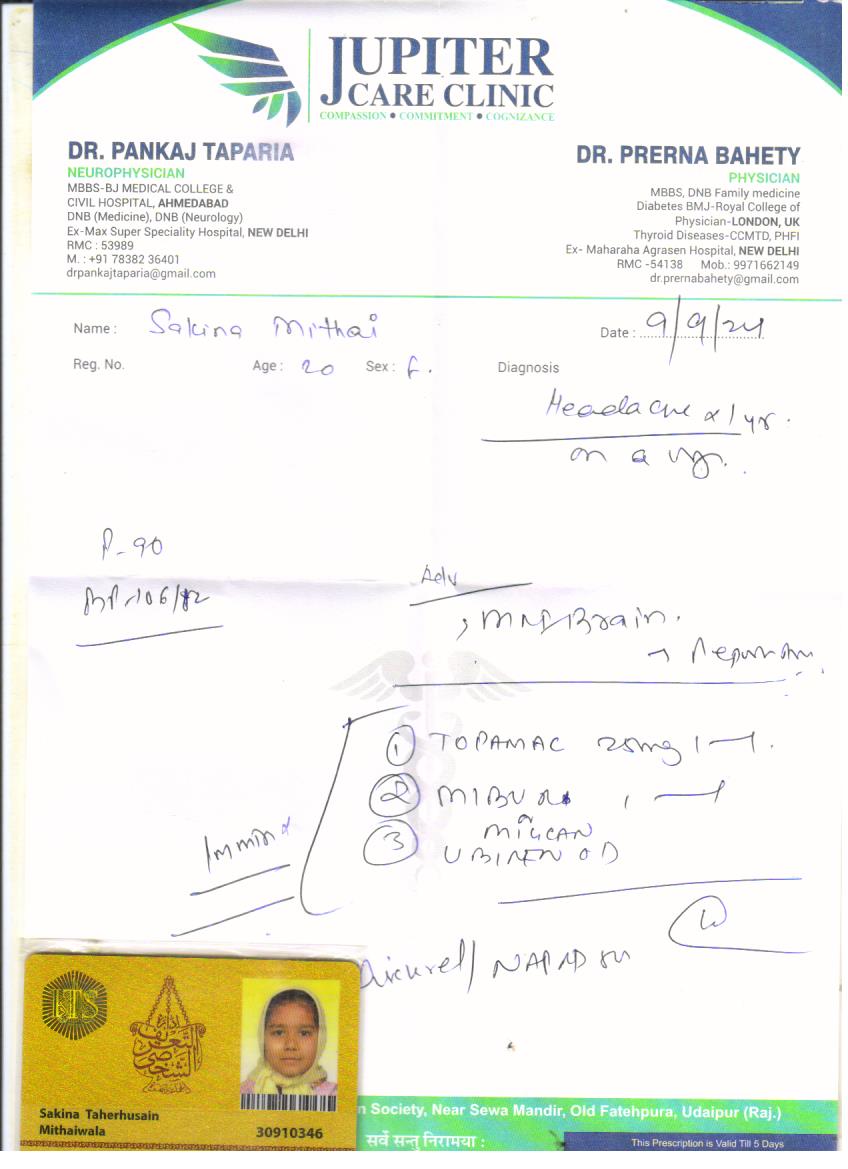 JUPITER
CARE CLINIC
COMPASSION • COMMITMENT • COGNIZANCE
DR. PANKAJ TAPARIA
NEUROPHYSICIAN
MBBS-BJ MEDICAL COLLEGE &
CIVIL HOSPITAL, AHMEDABAD
DNB (Medicine), DNB (Neurology)
Ex-Max Super Speciality Hospital, NEW DELHI
RMC : 53989
M. : +91 78382 36401
drpankajtaparia@gmail.com
DR. PRERNA BAHETY
PHYSICIAN
MBBS, DNB Family medicine
Diabetes BMJ-Royal College of
Physician-LONDON, UK
Thyroid Diseases-CCMTD, PHFI
Ex- Maharaha Agrasen Hospital, NEW DELHI
RMC -54138 Mob.: 9971662149
dr.prernabahety@gmail.com
Name : Sakina Mithai
Date : 9/9/24
Reg. No. Age : 20 Sex : f.
Diagnosis
Headache x 1 yr.
on a
P- 90
BP-106/82
Adv
MRI Brain.
① TOPAMAC 25mg 1—1.
②
③
UBINEN OD
NAPRD
ITS
إدارة
التعريف
الشخصي
Sakina Taherhusain
Mithaiwala
30910346
n Society, Near Sewa Mandir, Old Fatehpura, Udaipur (Raj.)
सर्वे सन्तु निरामया :
This Prescription is Valid Till 5 Days